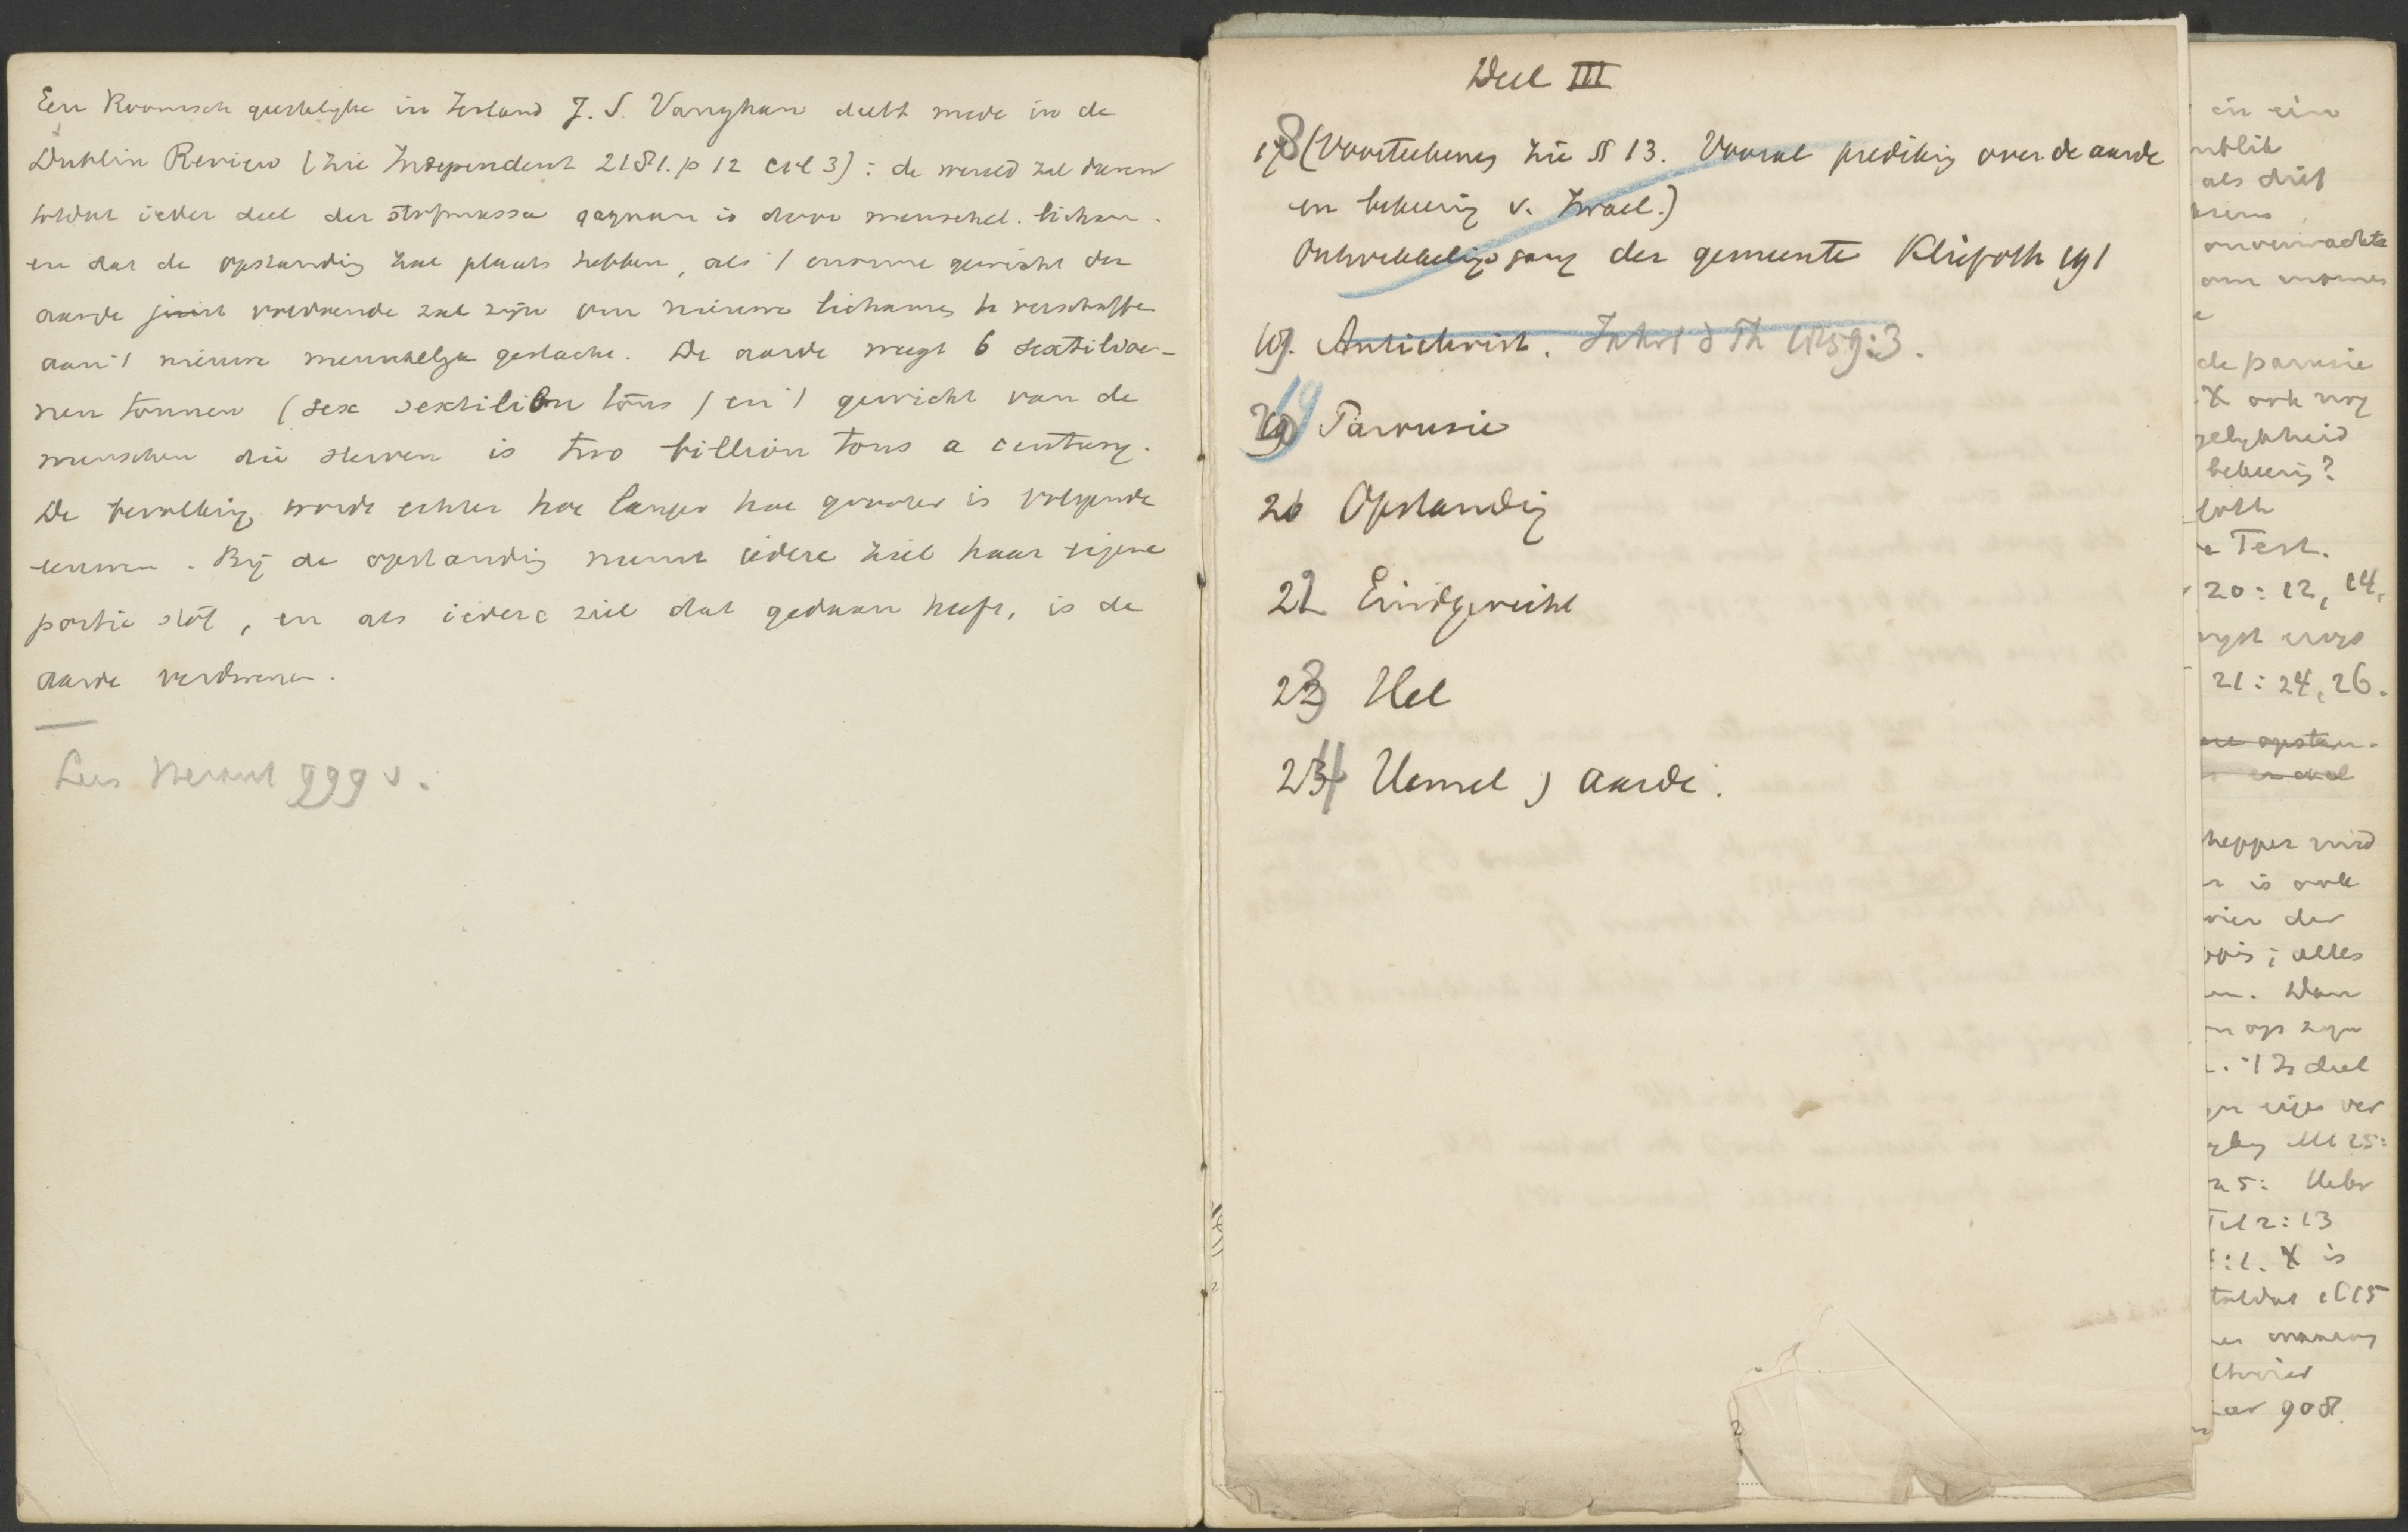 Een Roomsch geestelyke in Ierland J. S. Vaughan deelt mede in de
Dublin Review (zie Independent 2181. p 12 col 3): de wereld zal duren
totdat ieder deel der stofmassa gegaan is door menschel. licham.
en dat de opstanding zal plaats hebben, als 't enorme gewicht der
aarde juist voldoende zal zijn om nieuwe lichamen te verschaffe
aan 't nieuwe menschelyk geslacht. De aarde weegt 6 sextilioe-
nen tonnen (sex sextilion tons) en 't gewicht van de
menschen die sterven is two billion tons a century.
De bevolking wordt echter hoe langer hoe grooter is volgende
eeuwen. Bij de opstanding neemt iedere ziel haar eigene
portie stof, en als iedere ziel dat gedaan heeft, is de
aarde verdwenen.
Lees Heraut 999 v.
Deel III
178 (Voorteekenen zie § 13. Vooral prediking over de aarde
en bekeering v. Israel.)
Ontwikkelingsgang der gemeente Kliefoth 191
19. Antichrist. Jahrb d Th 1859:3.
19 Parousie
20 Opstanding
22 Eindgericht
23 Hel
234 Hemel ) aarde.
als drif
onverwachte
de parusie
X ook nog
bekeering?
Test.
20: 12, 14,
21: 24, 26.
is ook
der
; alles
Dan
op zyn
deel
ver
Mt 25:
25: Hebr
2:13
X is
totdat 1C15
908.